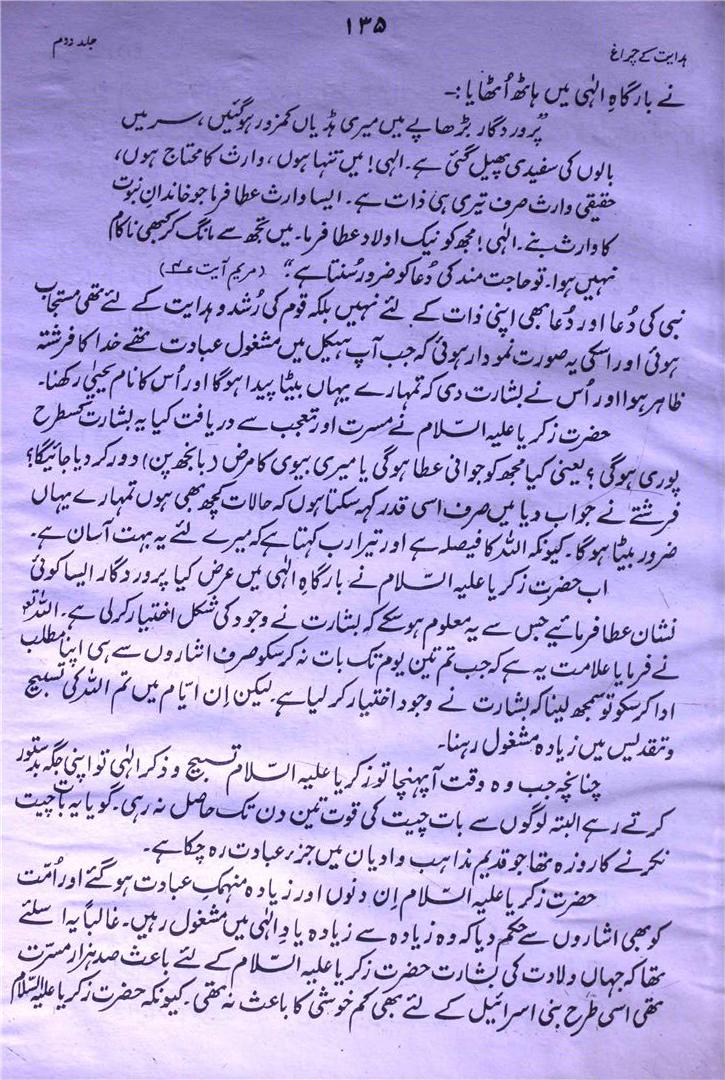 ۱۳۵
ہدایت کے چراغ
جلد دوم
نے بارگاہِ الٰہی میں ہاتھ اُٹھایا :۔
"پروردگار بڑھاپے میں میری ہڈیاں کمزور ہوگئیں، سر میں
بالوں کی سفیدی پھیل گئی ہے۔ الہٰی! میں تنہا ہوں، وارث کا محتاج ہوں،
حقیقی وارث صرف تیری ہی ذات ہے۔ ایسا وارث عطا فرما جو خاندانِ نبوّت
کا وارث بنے۔ الٰہی! مجھ کو نیک اولاد عطا فرما۔ میں تجھ سے مانگ کر کبھی ناکام
نہیں ہوا۔ تو حاجت مند کی دُعا کو ضرور سُنتا ہے"۔ (مریم آیت
نبی کی دُعا اور دُعا بھی اپنی ذات کے لئے نہیں بلکہ قوم کی رُشد و ہدایت کے لئے تھی مستجاب
ہوئی اور اسکی یہ صورت نمودار ہوئی کہ جب آپ ہیکل میں مشغول عبادت تھے خدا کا فرشتہ
ظاہر ہوا اور اُس نے بشارت دی کہ تمہارے یہاں بیٹا پیدا ہوگا اور اُس کا نام یحییٰ رکھنا۔
حضرت زکریا علیہ السّلام نے مسرت اور تعجب سے دریافت کیا یہ بشارت کسطرح
پوری ہوگی؟ یعنی کیا مجھ کو جوانی عطا ہوگی یا میری بیوی کا مرض (بانجھ پن) دور کردیا جائیگا؟
فرشتے نے جواب دیا میں صرف اسی قدر کہہ سکتا ہوں کہ حالات کچھ بھی ہوں تمہارے یہاں
ضرور بیٹا ہوگا۔ کیونکہ اللہ کا فیصلہ ہے اور تیرا رب کہتا ہے کہ میرے لئے یہ بہت آسان ہے۔
اب حضرت زکریا علیہ السّلام نے بارگاہِ الٰہی میں عرض کیا پروردگار ایسا کوئی
نشان عطا فرمائیے جس سے یہ معلوم ہوسکے کہ بشارت نے وجود کی شکل اختیار کرلی ہے۔ اللہ تع
نے فرمایا علامت یہ ہے کہ جب تم تین یوم تک بات نہ کرسکو صرف اشاروں سے ہی اپنا مطلب
ادا کرسکو تو سمجھ لینا کہ بشارت نے وجود اختیار کرلیا ہے۔ لیکن اِن ایّام میں تم اللہ کی تسبیح
و تقدیس میں زیادہ مشغول رہنا۔
چنانچہ جب وہ وقت آپہنچا تو زکریا علیہ السّلام تسبیح و ذکرِ الٰہی تو اپنی جگہ بدستور
کرتے رہے البتہ لوگوں سے بات چیت کی قوت تین دن تک حاصل نہ رہی۔ گویا یہ بات چیت
نکرنے کا روزہ تھا جو قدیم مذاہب و ادیان میں جزءِ عبادت رہ چکا ہے۔
حضرت زکریا علیہ السّلام اِن دنوں اور زیادہ منہمکِ عبادت ہوگئے اور اُمّت
کو بھی اشاروں سے حکم دیا کہ وہ زیادہ سے زیادہ یادِ الٰہی میں مشغول رہیں۔ غالباً یہ اسلئے
تھا کہ جہاں ولادت کی بشارت حضرت زکریا علیہ السّلام کے لئے باعث صد ہزار مسرّت
تھی اسی طرح بنی اسرائیل کے لئے بھی کم خوشی کا باعث نہ تھی۔ کیونکہ حضرت زکریا علیہ السّلام